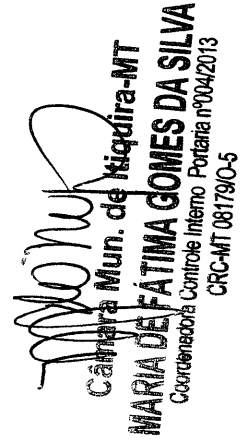 Câmara Mun. de Itiquira-MT
MARIA DE FÁTIMA GOMES DA SILVA
Coordenadora Controle Interno Portaria nº004/2013
CRC-MT 08179/O-5